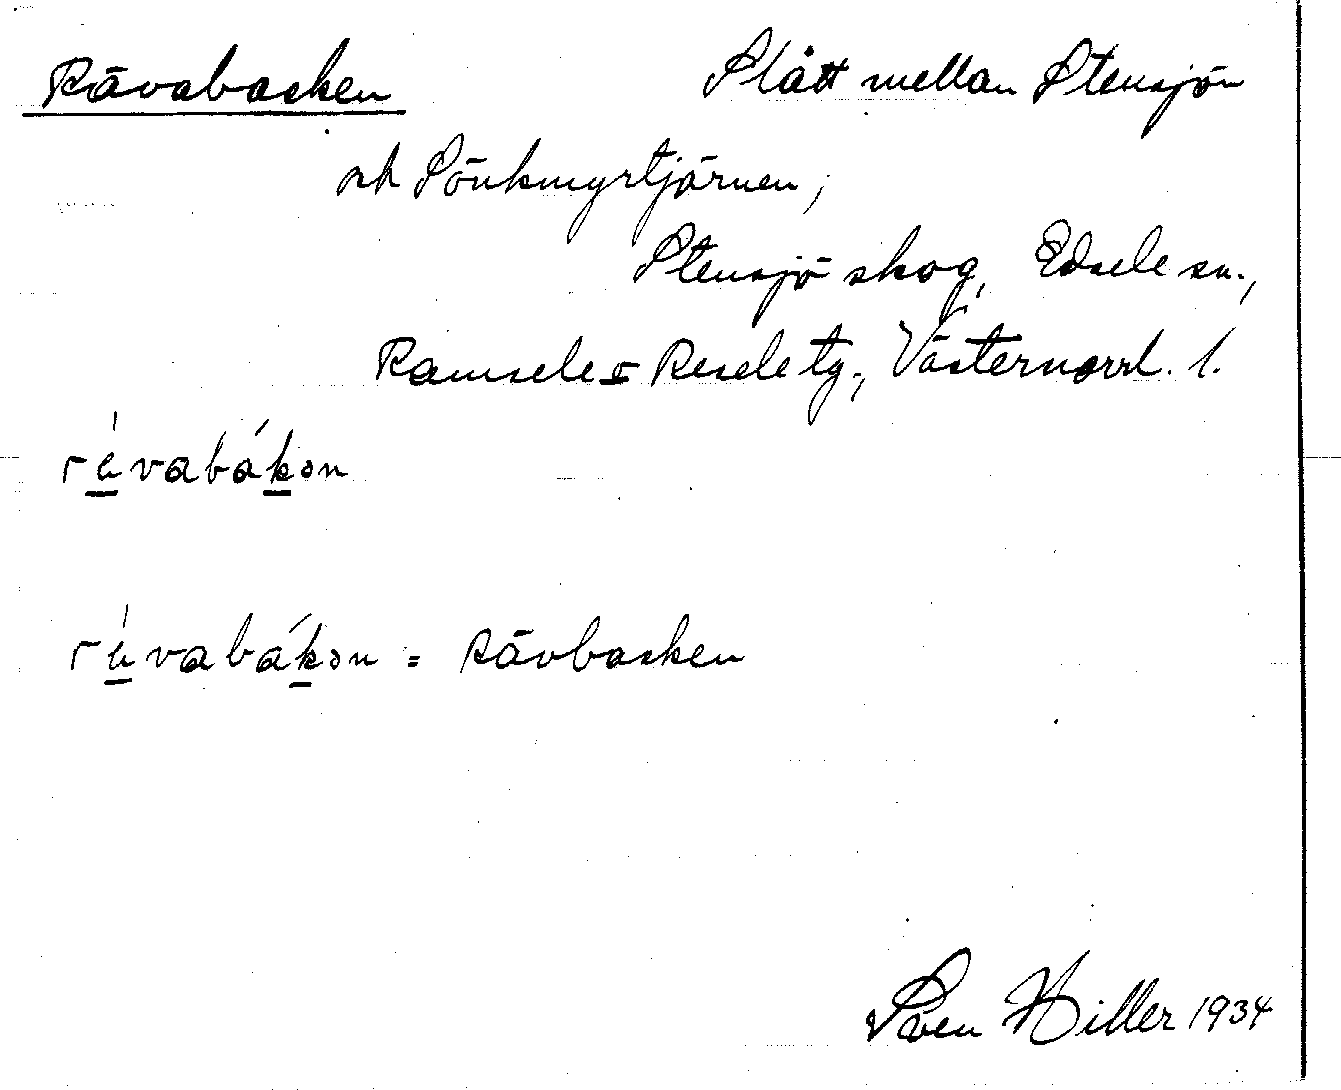 Rävabacken Slått mellan Stensjön
och Sönkmyrtjärnen,
Stensjö skog, Edsele sn.,
Ramsele o Resele tg., Västernorrl. l.
révabákən
révabákən = Rävbacken
Sven Hiller 1934